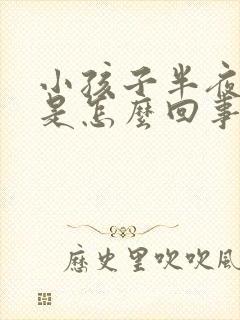 小孩子半夜
是怎麼回事
歷史里吹吹風